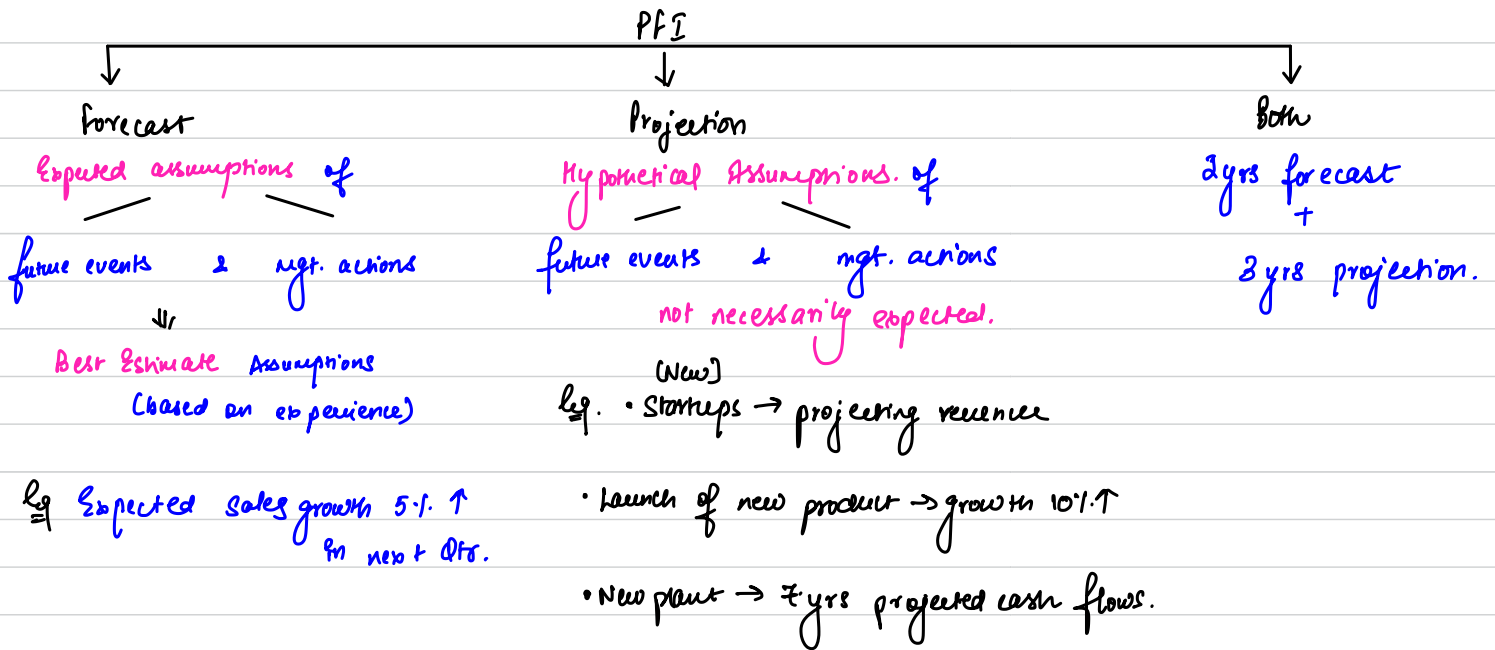 PFI
Forecast
Expected assumptions of
future events & mgt. actions
Best Estimate Assumptions
(based on experience)
Eg Expected sales growth 5% ↑
in next Qtr.
Projection
Hypothetical Assumptions. of
future events & mgt. actions
not necessarily expected.
(New)
Eg. • Startups → projecting revenue
• Launch of new product → growth 10% ↑
• New plant → 7 yrs projected cash flows.
Both
2yrs forecast
+
3yrs projection.